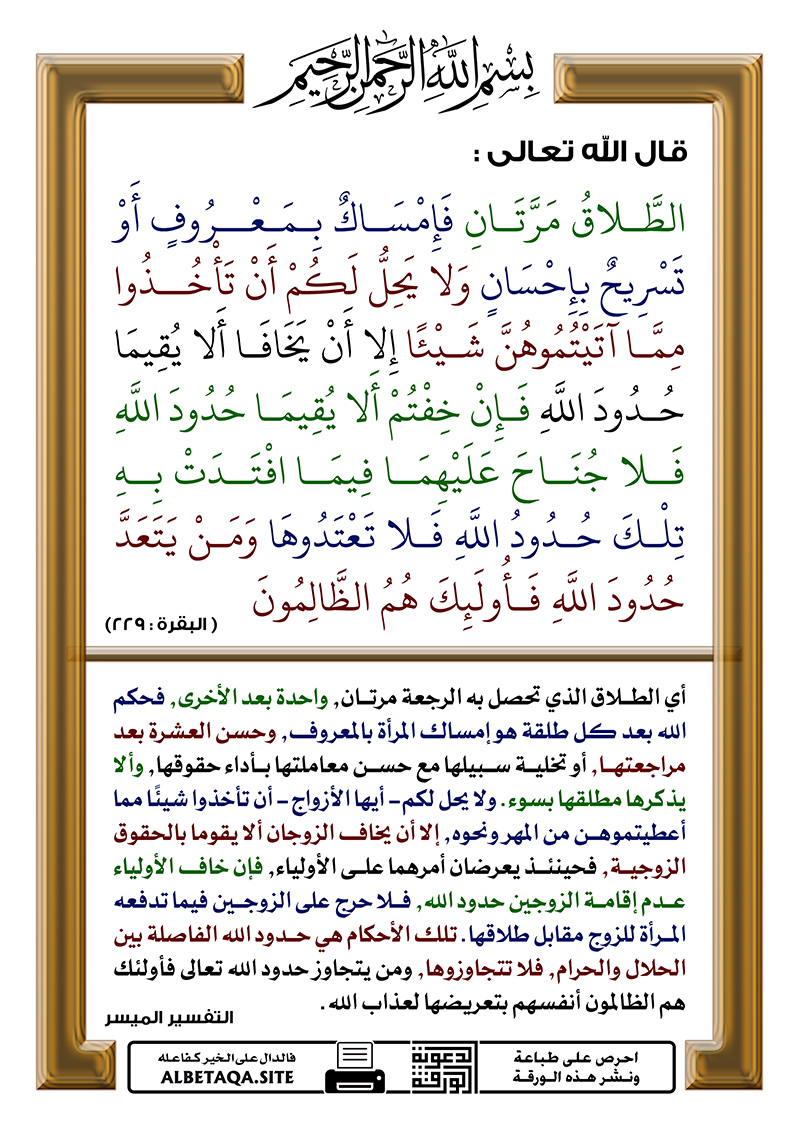 بِسْمِ اللَّهِ الرَّحْمَنِ الرَّحِيمِ
قال الله تعالى :
الطَّلاقُ مَرَّتَانِ فَإِمْسَاكٌ بِمَعْرُوفٍ أَوْ
تَسْرِيحٌ بِإِحْسَانٍ وَلا يَحِلُّ لَكُمْ أَنْ تَأْخُذُوا
مِمَّا آتَيْتُمُوهُنَّ شَيْئًا إِلا أَنْ يَخَافَا أَلا يُقِيمَا
حُدُودَ اللَّهِ فَإِنْ خِفْتُمْ أَلا يُقِيمَا حُدُودَ اللَّهِ
فَلا جُنَاحَ عَلَيْهِمَا فِيمَا افْتَدَتْ بِهِ
تِلْكَ حُدُودُ اللَّهِ فَلا تَعْتَدُوهَا وَمَنْ يَتَعَدَّ
حُدُودَ اللَّهِ فَأُولَئِكَ هُمُ الظَّالِمُونَ
(البقرة : ٢٢٩)
أي الطلاق الذي تحصل به الرجعة مرتان, واحدة بعد الأخرى, فحكم
الله بعد كل طلقة هو إمساك المرأة بالمعروف, وحسن العشرة بعد
مراجعتها, أو تخلية سبيلها مع حسن معاملتها بأداء حقوقها, وألا
يذكرها مطلقها بسوء. ولا يحل لكم- أيها الأزواج- أن تأخذوا شيئًا مما
أعطيتموهن من المهر ونحوه, إلا أن يخاف الزوجان ألا يقوما بالحقوق
الزوجية, فحينئذ يعرضان أمرهما على الأولياء, فإن خاف الأولياء
عدم إقامة الزوجين حدود الله, فلا حرج على الزوجين فيما تدفعه
المرأة للزوج مقابل طلاقها. تلك الأحكام هي حدود الله الفاصلة بين
الحلال والحرام, فلا تتجاوزوها, ومن يتجاوز حدود الله تعالى فأولئك
هم الظالمون أنفسهم بتعريضها لعذاب الله.
التفسير الميسر
احرص على طباعة
ونشر هذه الورقة
الدعوية
الورقة
فالدال على الخير كفاعله
ALBETAQA.SITE